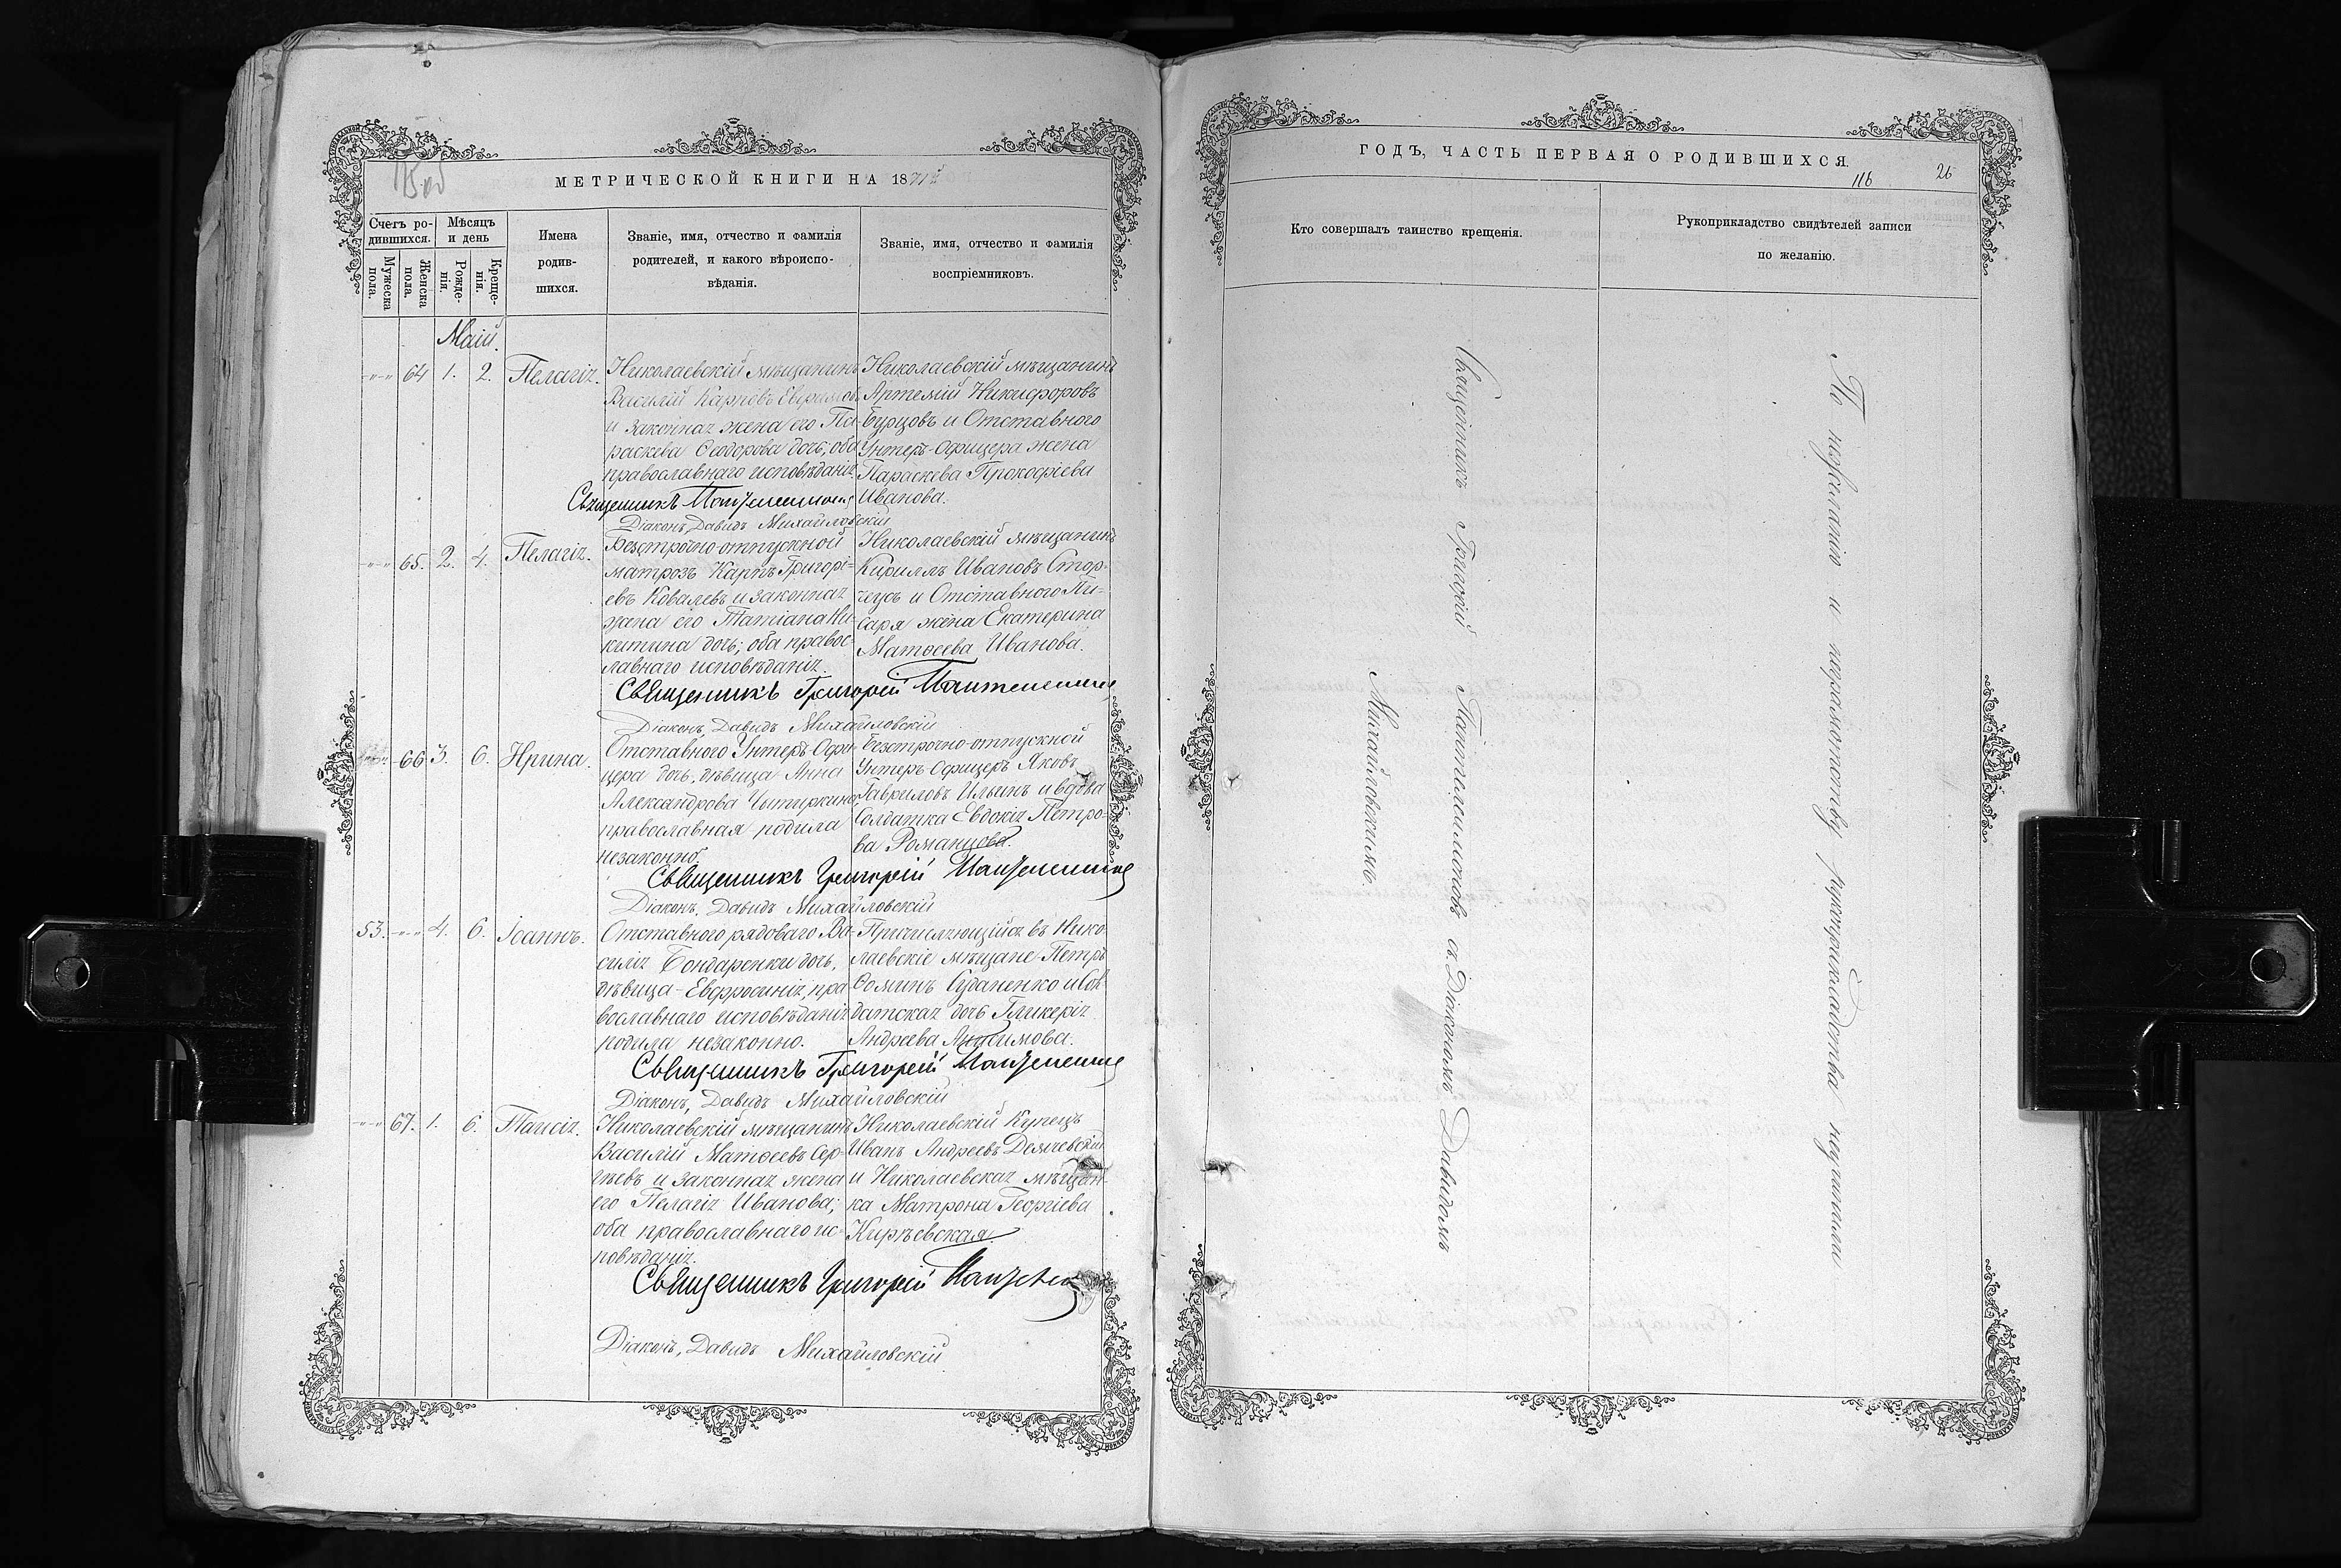 МЕТРИЧЕСКОЙ КНИГИ НА 1871й
Счетъ ро-
дившихся.
Мѣсяцъ
и день
Мужеска
пола.
Женска
пола.
Рожде-
нія.
Креще-
нія.
Имена
родив-
шихся.
Званіе, имя, отчество и фамилія
родителей, и какого вѣроиспо-
вѣданія.
Званіе, имя, отчество и фамилія
воспріемниковъ.
Маій.
-„-„ 64 1. 2. Пелагія.
Николаевскій мѣщанинъ
Василій Карповъ
и законная жена его Па-
раскева Ѳеодорова дочь; оба
православнаго исповѣданія.
Николаевскій мѣщанинъ
Артемій Никифоровъ
Бурцовъ и Отставного
Унтеръ-Офицера жена
Параскева Прокофіева
Иванова.
Священникъ
Діаконъ, Давидъ Михайловскій
-„-„ 65. 2. 4. Пелагія.
Безсрочно-отпускной
матрозъ Карпъ Григорі-
евъ Ковалевъ и законная
жена его Татіана Ни-
китина дочь; оба правос-
лавнаго исповѣданія.
Николаевскій мѣщанинъ
Кириллъ Ивановъ Стор-
чеусъ и Отставного Пи-
саря жена Екатерина
Матѳеева Иванова.
Священникъ Григорій Пантелеимоновъ
Діаконъ, Давидъ Михайловскій
66 3. 6. Ирина.
Отставного Унтеръ Офи-
цера дочь, дѣвица Анна
Александрова
православная родила
незаконно.
Безсрочно-отпускной
Унтеръ Офицеръ Яковъ
Гавриловъ Ильинъ и вдова
Солдатка Евдокія Петро-
ва Романцова.
Священникъ Григорій Пантелеимоновъ
Діаконъ, Давидъ Михайловскій
53. -„-„ 4. 6. Іоаннъ.
Отставного рядоваго Ва-
силія Бондаренки дочь,
дѣвица-Евфросинія, пра
вославнаго исповѣданія
родила незаконно.
Причисляющійся въ Нико
лаевскіе мѣщане Петръ
Ѳоминъ и Сол
датская дочь Гликерія
Андреева
Священникъ Григорій Пантелеимоновъ
Діаконъ, Давидъ Михайловскій
-„-„ 67. 1. 6. Таисія.
Николаевскій мѣщанинъ
Василій Матѳеевъ Сер-
гѣевъ и законная жена
его Пелагія Иванова;
оба православнаго ис-
повѣданія.
Николаевскій Купецъ
Иванъ Андреевъ
и Николаевская мѣщан-
ка Матрона Георгіева
Кирѣевская.
Священникъ Григорій
Діаконъ, Давидъ Михайловскій
ГОДЪ, ЧАСТЬ ПЕРВАЯ О РОДИВШИХСЯ.
116 26
Кто совершалъ таинство крещенія.
Рукоприкладство свидѣтелей записи
по желанію.
Священникъ Григорій Пантелеимоновъ съ Діакономъ Давидомъ
Михайловскимъ.
По нежеланію и неграмотству рукоприкладства неучинили